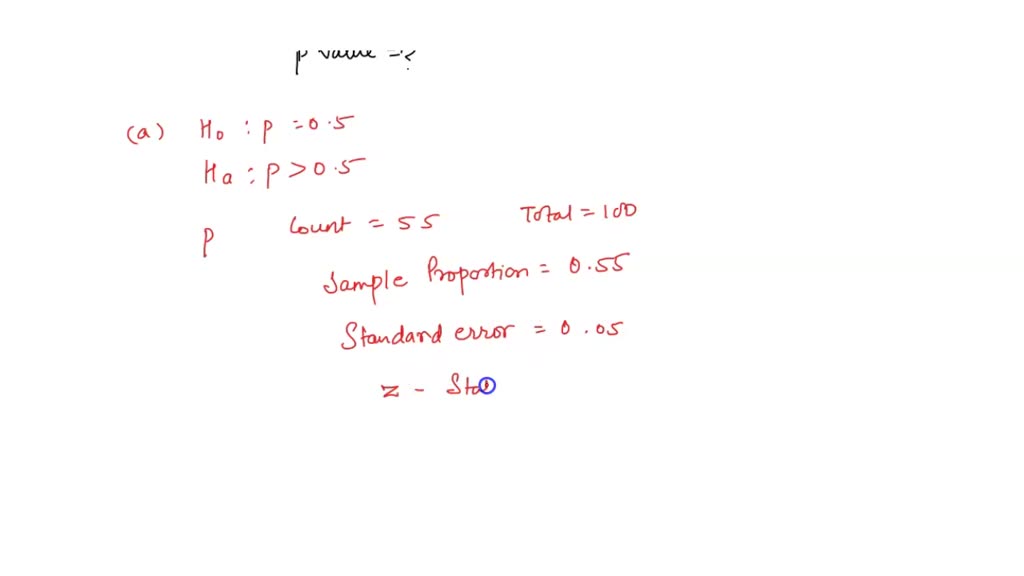 p value = ?
(a) H0 : p = 0.5
Ha : p > 0.5
p Count = 55 Total = 100
Sample Proportion = 0.55
Standard error = 0.05
z - Sta